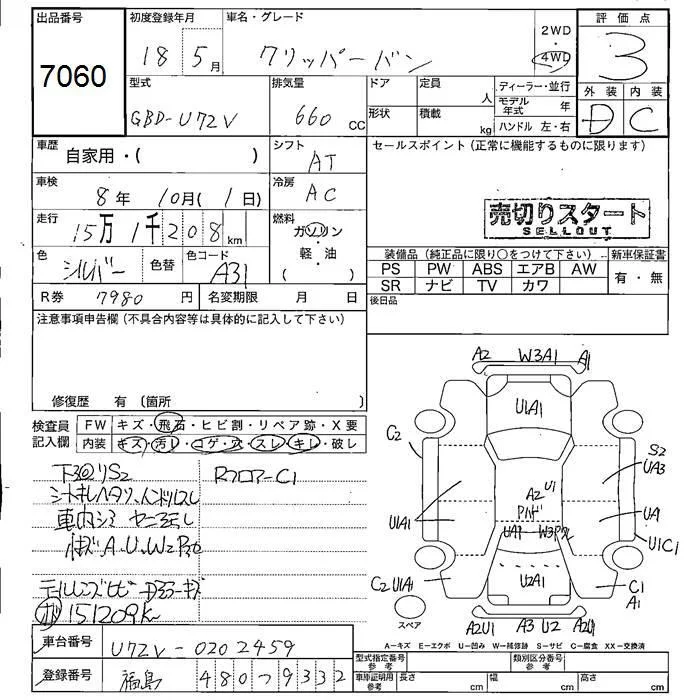 出品番号
7060
初度登録年月
18 5月
車名・グレード
クリッパーバン
2WD
4WD
評価点
3
外装 内装
D C
型式
GBD-U72V
排気量
660 CC
ドア
形状
定員
人
積載
kg
ディーラー・並行
モデル年式 年
ハンドル 左・右
車歴
自家用・( )
シフト
AT
セールスポイント(正常に機能するものに限ります)
車検
8年 10月(1日)
冷房
AC
走行
15万1千208km
燃料
ガソリン
軽・油
( )
売切りスタート
SELLOUT
色
シルバー
色替
色コード
A31
装備品(純正品に限り○をつけて下さい)
新車保証書
PS PW ABS エアB AW
SR ナビ TV カワ
有・無
R券 7980 円
名変期限 月 日
後日品
注意事項申告欄(不具合内容等は具体的に記入して下さい)
修復歴 有(箇所
検査員記入欄
FW キズ・飛石・ヒビ割・リペア跡・X要
内装 キズ・汚レ・コゲ・穴・スレ・キレ・破レ
S2
RフロアーC1
A.U.W2
151209K
A2 W3A1 A1
U1A1
C2
S2
UA3
A2 U1
U1A1
UA1
UA
U1C1
C2 U1A1
U2A1
C1
A1
スペア
A2U1 A3 U2 A2U1
A=キズ E=エクボ U=凹み W=補修跡 S=サビ C=腐食 XX=交換済
車台番号
U72V-0202459
登録番号
福島 480 ｿ 9332
型式指定番号
参考
類別区分番号
参考
車庫証明用
参考
長さ cm
幅 cm
高さ cm